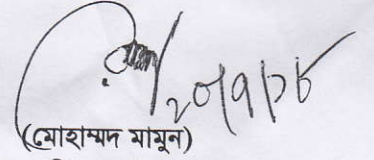 ২০/৭/১৮
(মোহাম্মদ মামুন)